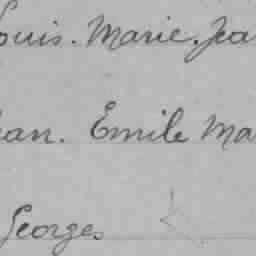 Louis. Marie. Jea
ean. Emile Ma
Georges